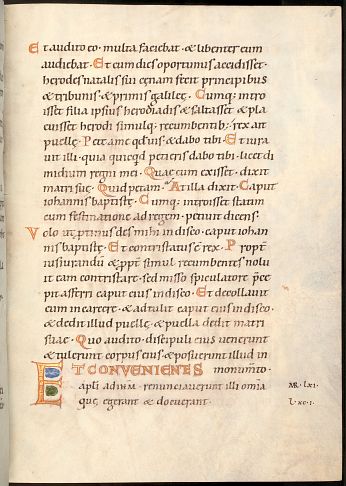 Et audito eo· multa faciebat· & libenter eum
audiebat· Et cum dies oportunus accidisset·
herodes natalis sui cęnam fecit principibus
& tribunis· & primis galileę· Cumq; intro
isset filia ipsius herodiadis & saltasset· & pla
cuisset herodi simulq; recumbentib;· rex ait
puellę· Pete a me qđ vis· & dabo tibi· Et iura
vit illi· quia quicqđ petieris dabo tibi· licet di
midium regni mei· Quę cum exisset· dixit
matri suę· Quid petam· At illa dixit· Caput
iohannis baptistę· Cumq; introisset statim
cum festinatione ad regem· petivit dicens·
Volo ut protinus des mihi in disco· caput iohan
nis baptistę· Et contristatus ē rex· Propt
iusiurandū & ppt simul recumbentes nolu
it eam contristare· sed misso speculatore pcę
pit afferri caput eius in disco· Et decollavit
eum in carcere· & adtulit caput eius in disco·
& dedit illud puellę· & puella dedit matri
suae· Quo audito· discipuli eius venerunt
& tulerunt corpus eius & posuerunt illud in
ET CONVENIENES monumto·
apli ad ihm· renunciaverunt illi omia
quę egerant & docuerant·
MR· lxi·
L· xc· i·